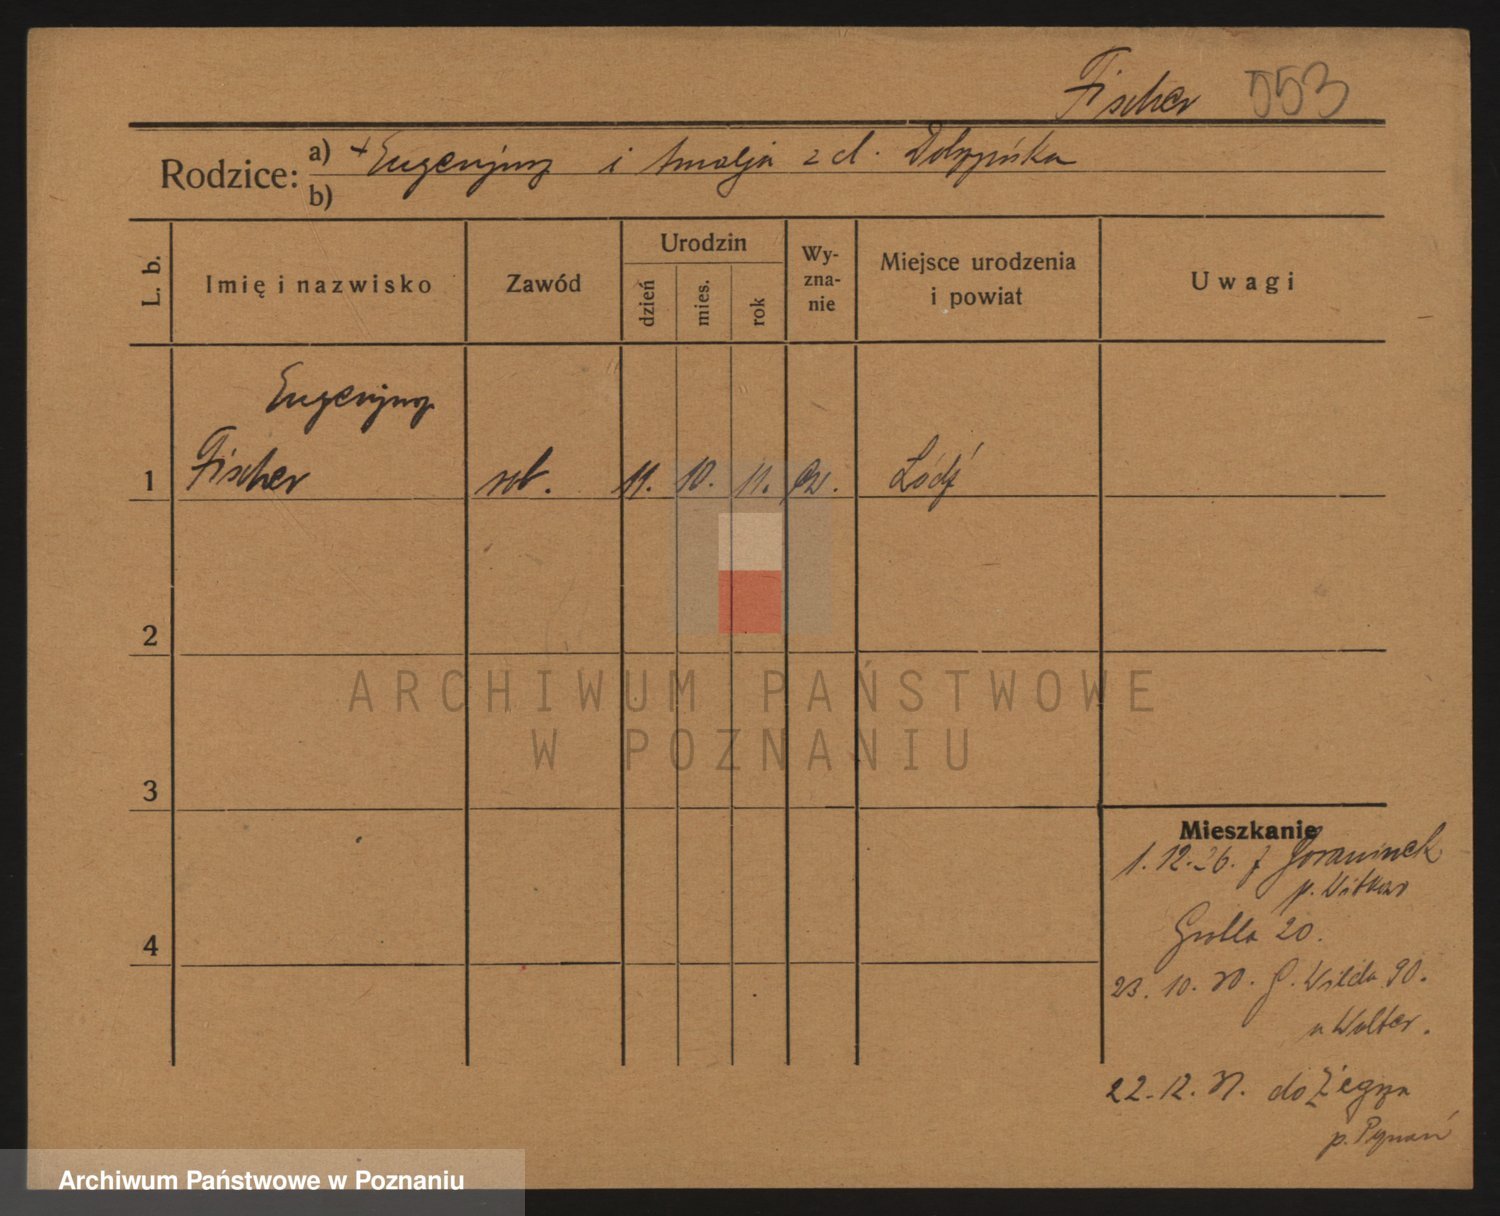 Fischer 553
Rodzice: a) + Eugenjusz i Amalja z d. Dobrzyńska
b)
L. b.
Imię i nazwisko
Zawód
Urodzin
dzień
mies.
rok
Wy-
zna-
nie
Miejsce urodzenia
i powiat
Uwagi
Eugenjusz
1 Fischer rob. 11. 10. 11. Łódź
2
3
4
ARCHIWUM PAŃSTWOWE
W POZNANIU
Mieszkanie
1.12.26. z
p. Witkowo
Grobla 20.
23. 10. 30. G. Wilda 90.
u Walter.
22.12. 31. do Żegrza
p. Poznań
Archiwum Państwowe w Poznaniu